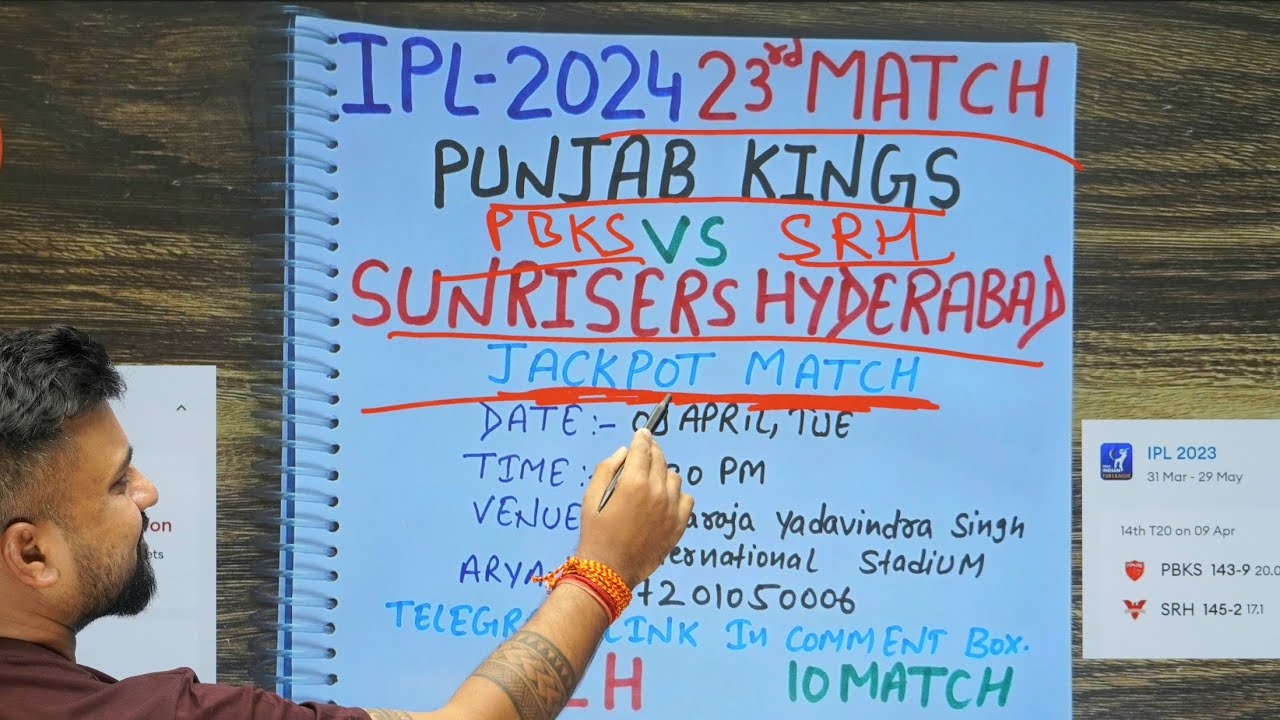 IPL-2024 23rd MATCH
PUNJAB KINGS
PBKS VS SRH
SUNRISERS HYDERABAD
JACKPOT MATCH
DATE:- APRIL, TUE
TIME: PM
VENUE Yadavindra Singh
Stadium
LINK In COMMENT Box.
10 MATCH
IPL 2023
31 Mar - 29 May
14th T20 on 09 Apr
PBKS 143-9 20.0
SRH 145-2 17.1